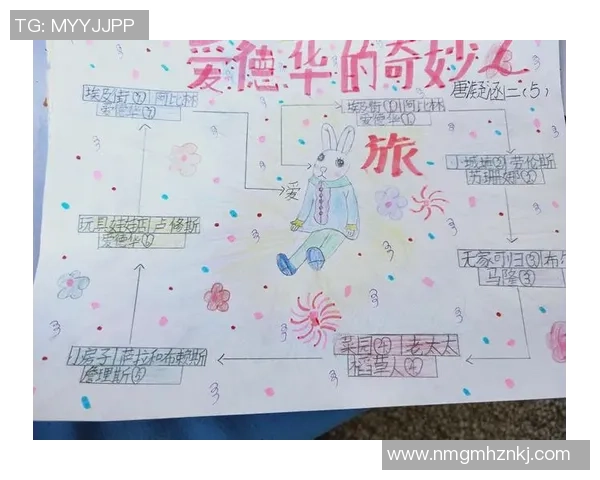 TG: MYYJJPP
爱德华的奇妙之
旅
唐凝涵二(5)
埃及街⑦ 阿比林
爱德华⑦
埃及街① 阿比林
爱德华①
爱
小城堡② 劳伦斯
苏珊娜②
无家可归③ 布
马隆③
菜园④ 老太太
稻草人④
小房子 萨拉和布赖斯
詹理斯⑤
玩具娃娃店 卢修斯
爱德华⑥
www.nmgmhznkj.com